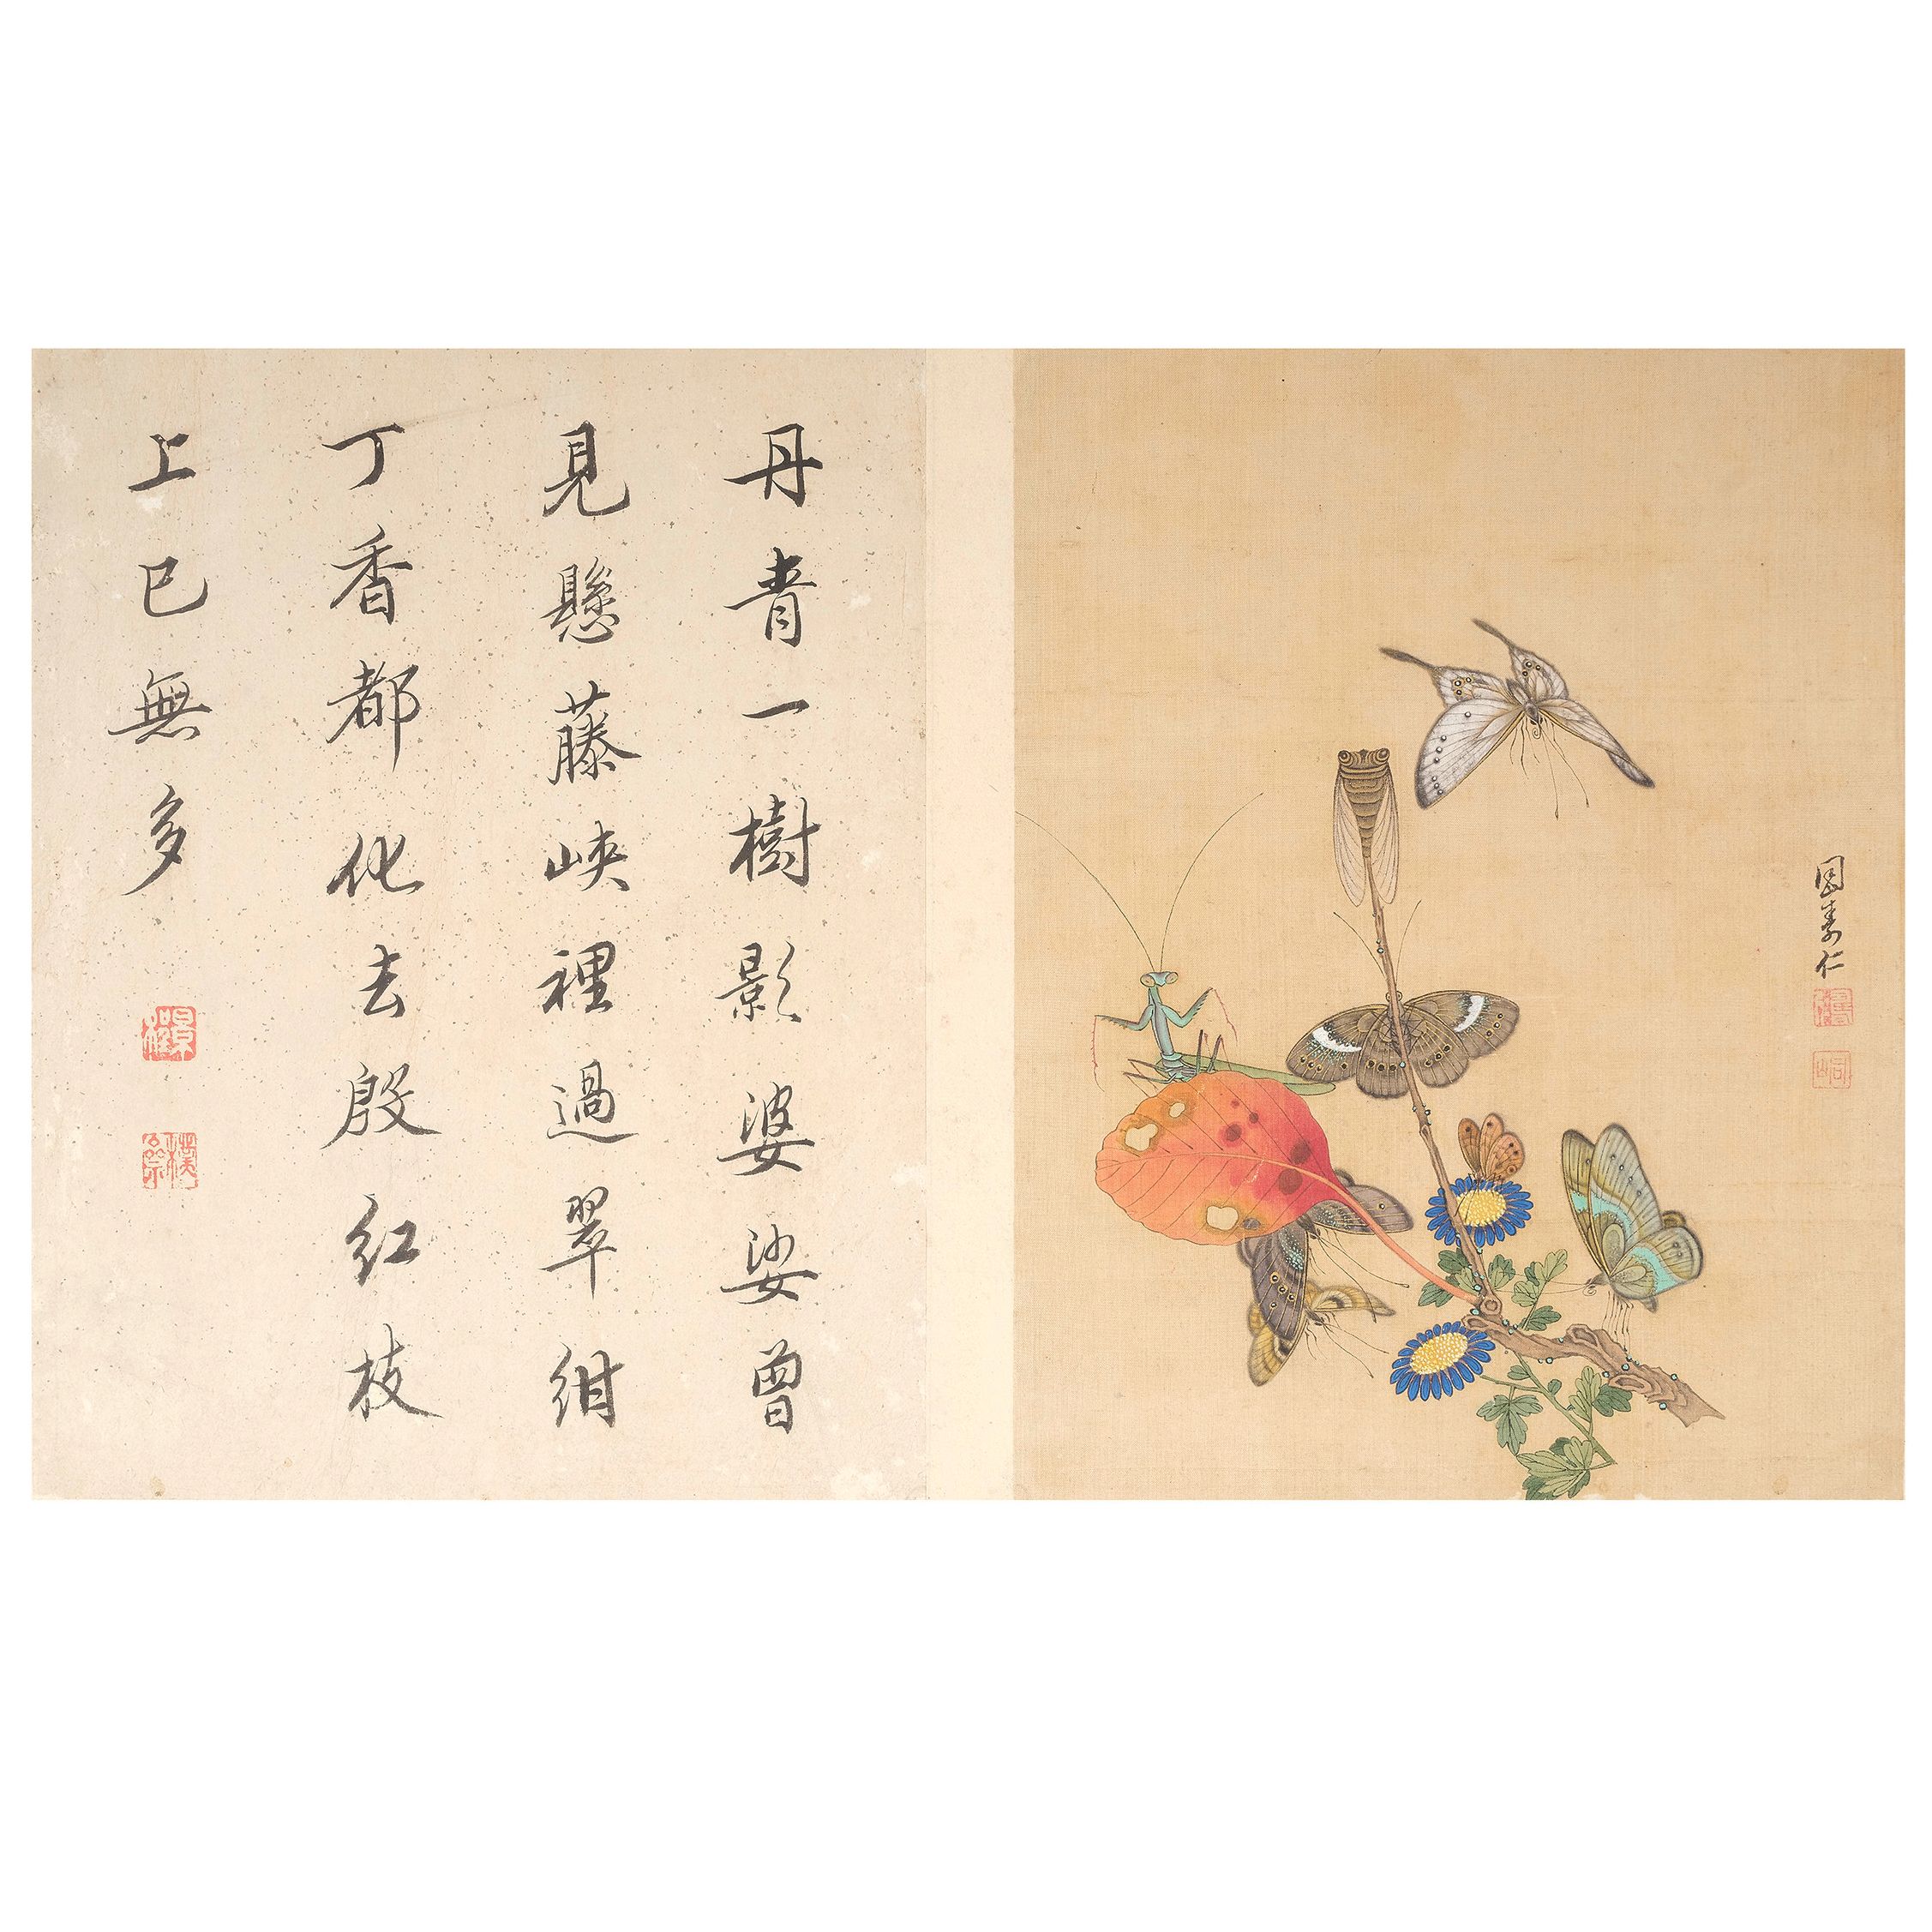 丹青一樹影婆娑曾
見懸藤峽裡過翠紺
丁香都化去殷紅枝
上已無多